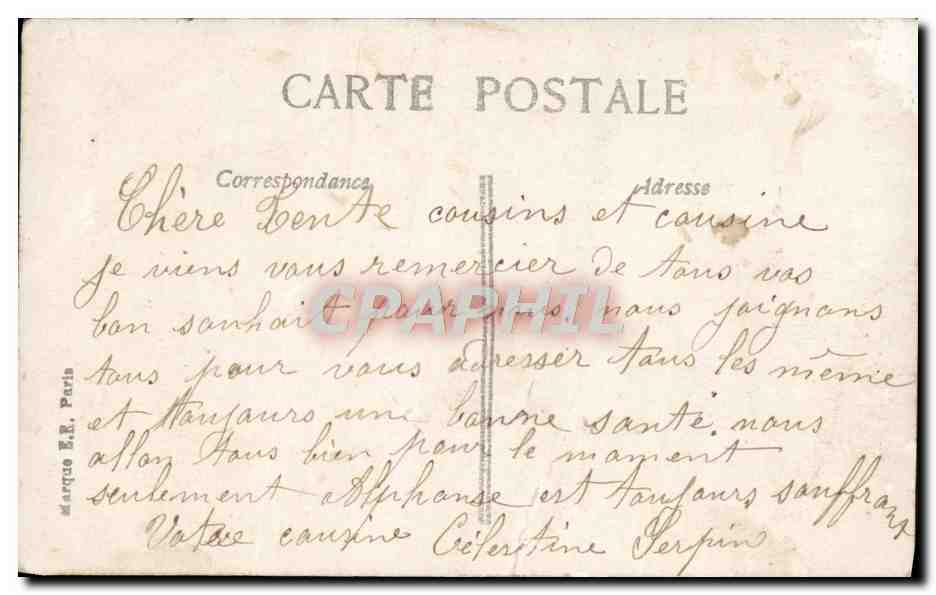 CARTE POSTALE
Correspondance
Adresse
Chère tente cousins et cousine
je viens vous remercier de tous vos
bon souhait pour nous nous joignons
tous pour vous adresser tous les même
et toujours une bonne santé. nous
allon tous bien pour le moment
seulement Alphonse est toujours souffrant
Votre cousine Célestine Serpin
Marque E.R. Paris
CPAPHIL